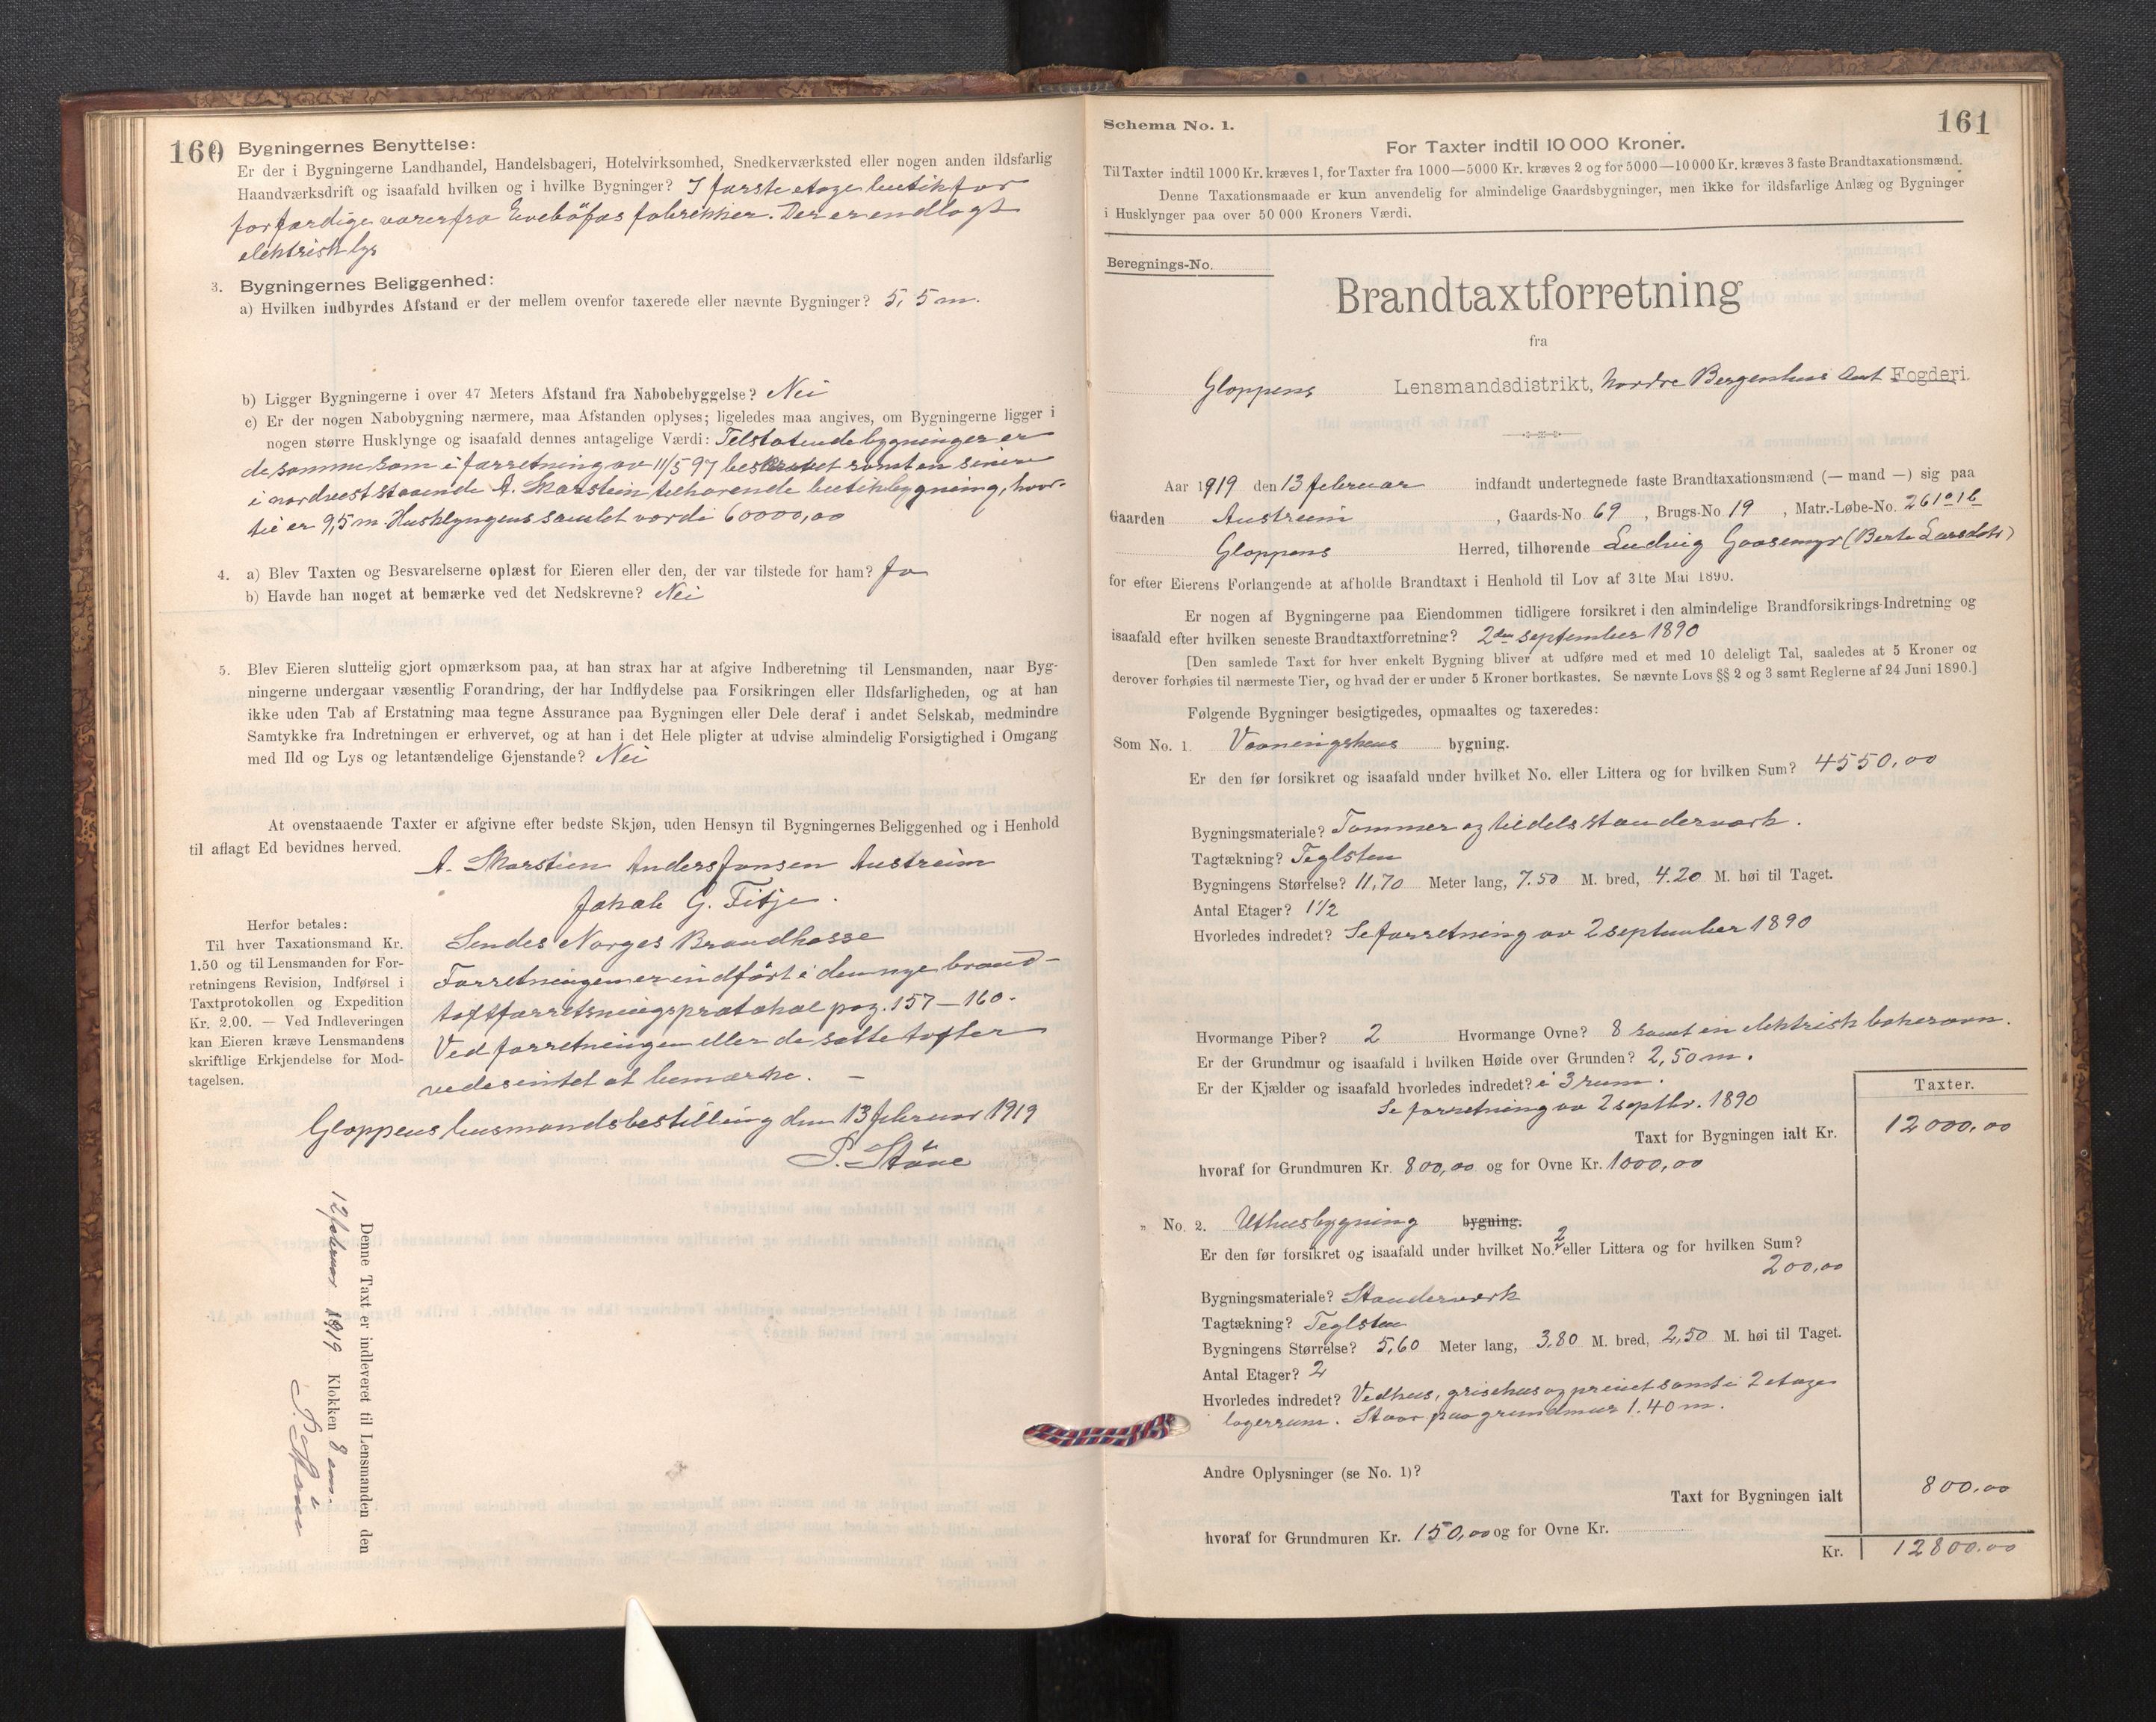 160
Bygningernes Benyttelse:
Er der i Bygningerne Landhandel, Handelsbageri, Hotelvirksomhed, Snedkerværksted eller nogen anden ildsfarlig
Haandværksdrift og isaafald hvilken og i hvilke Bygninger? I første etage butik for
forfærdige varer fra Evebøfos fabrikker. Der er endlagt
elektrisk lys
3. Bygningernes Beliggenhed:
a) Hvilken indbyrdes Afstand er der mellem ovenfor taxerede eller nævnte Bygninger? 5,5 m.
b) Ligger Bygningerne i over 47 Meters Afstand fra Nabobebyggelse? Nei
c) Er der nogen Nabobygning nærmere, maa Afstanden oplyses; ligeledes maa angives, om Bygningerne ligger i
nogen større Husklynge og isaafald dennes antagelige Værdi: Tilstøtende bygninger er
de samme som i forretning av 11/5 97 beskrevet samt en senere
i nordvest staaende A. Skarstein tilhørende butikbygning, hvor-
til er 9,5 m. Husklyngens samlet værdi 60000,00
4. a) Blev Taxten og Besvarelserne oplæst for Eieren eller den, der var tilstede for ham? Ja
b) Havde han noget at bemærke ved det Nedskrevne? Nei
5. Blev Eieren sluttelig gjort opmærksom paa, at han strax har at afgive Indberetning til Lensmanden, naar Byg-
ningerne undergaar væsentlig Forandring, der har Indflydelse paa Forsikringen eller Ildsfarligheden, og at han
ikke uden Tab af Erstatning maa tegne Assurance paa Bygningen eller Dele deraf i andet Selskab, medmindre
Samtykke fra Indretningen er erhvervet, og at han i det Hele pligter at udvise almindelig Forsigtighed i Omgang
med Ild og Lys og letantændelige Gjenstande? Nei
At ovenstaaende Taxter er afgivne efter bedste Skjøn, uden Hensyn til Bygningernes Beliggenhed og i Henhold
til aflagt Ed bevidnes herved.
A. Skarstien Anders Jonsen Austreim
Jakob G. Fitje.
Herfor betales:
Til hver Taxationsmand Kr.
1.50 og til Lensmanden for For-
retningens Revision, Indførsel i
Taxtprotokollen og Expedition
Kr. 2.00. — Ved Indleveringen
kan Eieren kræve Lensmandens
skriftlige Erkjendelse for Mod-
tagelsen.
Sendes Norges Brandkasse
Forretningen er indført i den nye brand-
taxtforretningsprotokol pag. 157—160.
Ved forretningen eller de satte taxter
vedes intet at bemærke. —
Gloppens lensmandsbestilling den 13 februar 1919
P. Støve
Denne Taxt er indleveret til Lensmanden den
12 februar 1919 Klokken 8 em.
P. Støve
161
Schema No. 1.
For Taxter indtil 10 000 Kroner.
Til Taxter indtil 1000 Kr. kræves 1, for Taxter fra 1000—5000 Kr. kræves 2 og for 5000—10000 Kr. kræves 3 faste Brandtaxationsmænd.
Denne Taxationsmaade er kun anvendelig for almindelige Gaardsbygninger, men ikke for ildsfarlige Anlæg og Bygninger
i Husklynger paa over 50 000 Kroners Værdi.
Beregnings-No.
Brandtaxtforretning
fra
Gloppens Lensmandsdistrikt, Nordre Bergenhus Amt Fogderi.
Aar 1919 den 13 februar indfandt undertegnede faste Brandtaxationsmænd (— mand —) sig paa
Gaarden Austreim, Gaards-No. 69, Brugs-No 19, Matr.-Løbe-No. 261 a 1 b
Gloppens Herred, tilhørende Ludvig Gaasemyr (Berte Larsdotr)
for efter Eierens Forlangende at afholde Brandtaxt i Henhold til Lov af 31te Mai 1890.
Er nogen af Bygningerne paa Eiendommen tidligere forsikret i den almindelige Brandforsikrings-Indretning og
isaafald efter hvilken seneste Brandtaxtforretning? 2den september 1890
[Den samlede Taxt for hver enkelt Bygning bliver at udføre med et med 10 deleligt Tal, saaledes at 5 Kroner og
derover forhøies til nærmeste Tier, og hvad der er under 5 Kroner bortkastes. Se nævnte Lovs §§ 2 og 3 samt Reglerne af 24 Juni 1890.]
Følgende Bygninger besigtigedes, opmaaltes og taxeredes:
Som No. 1. Vaaningshus bygning.
Er den før forsikret og isaafald under hvilket No. eller Littera og for hvilken Sum? 4550,00
Bygningsmateriale? Tømmer og tildels standerværk.
Tagtækning? Teglsten
Bygningens Størrelse? 11,70 Meter lang, 7.50 M. bred, 4.20 M. høi til Taget.
Antal Etager? 1 1/2
Hvorledes indredet? Se forretning av 2 september 1890
Hvormange Piber? 2 Hvormange Ovne? 8 samt en elektrisk bakerovn.
Er der Grundmur og isaafald i hvilken Høide over Grunden? 2,50 m.
Er der Kjælder og isaafald hvorledes indredet? i 3 rum.
Se forretning av 2 septbr. 1890
Taxter.
Taxt for Bygningen ialt Kr. 12000,00
hvoraf for Grundmuren Kr. 800,00 og for Ovne Kr. 1000,00
„ No. 2. Uthusbygning bygning.
Er den før forsikret og isaafald under hvilket No. 2 eller Littera og for hvilken Sum?
200,00
Bygningsmateriale? Standerværk
Tagtækning? Teglsten
Bygningens Størrelse? 5,60 Meter lang, 3,80 M. bred, 2,50 M. høi til Taget.
Antal Etager? 2
Hvorledes indredet? Vedhus, grisehus og privet samt i 2 etage
lagerrum. Staar paa grundmur 1.40 m.
Andre Oplysninger (se No. 1)?
Taxt for Bygningen ialt 800,00
hvoraf for Grundmuren Kr. 150,00 og for Ovne Kr.
Kr. 12800,00